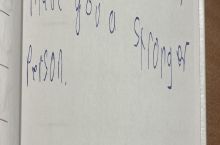 Make you a stronger
person.